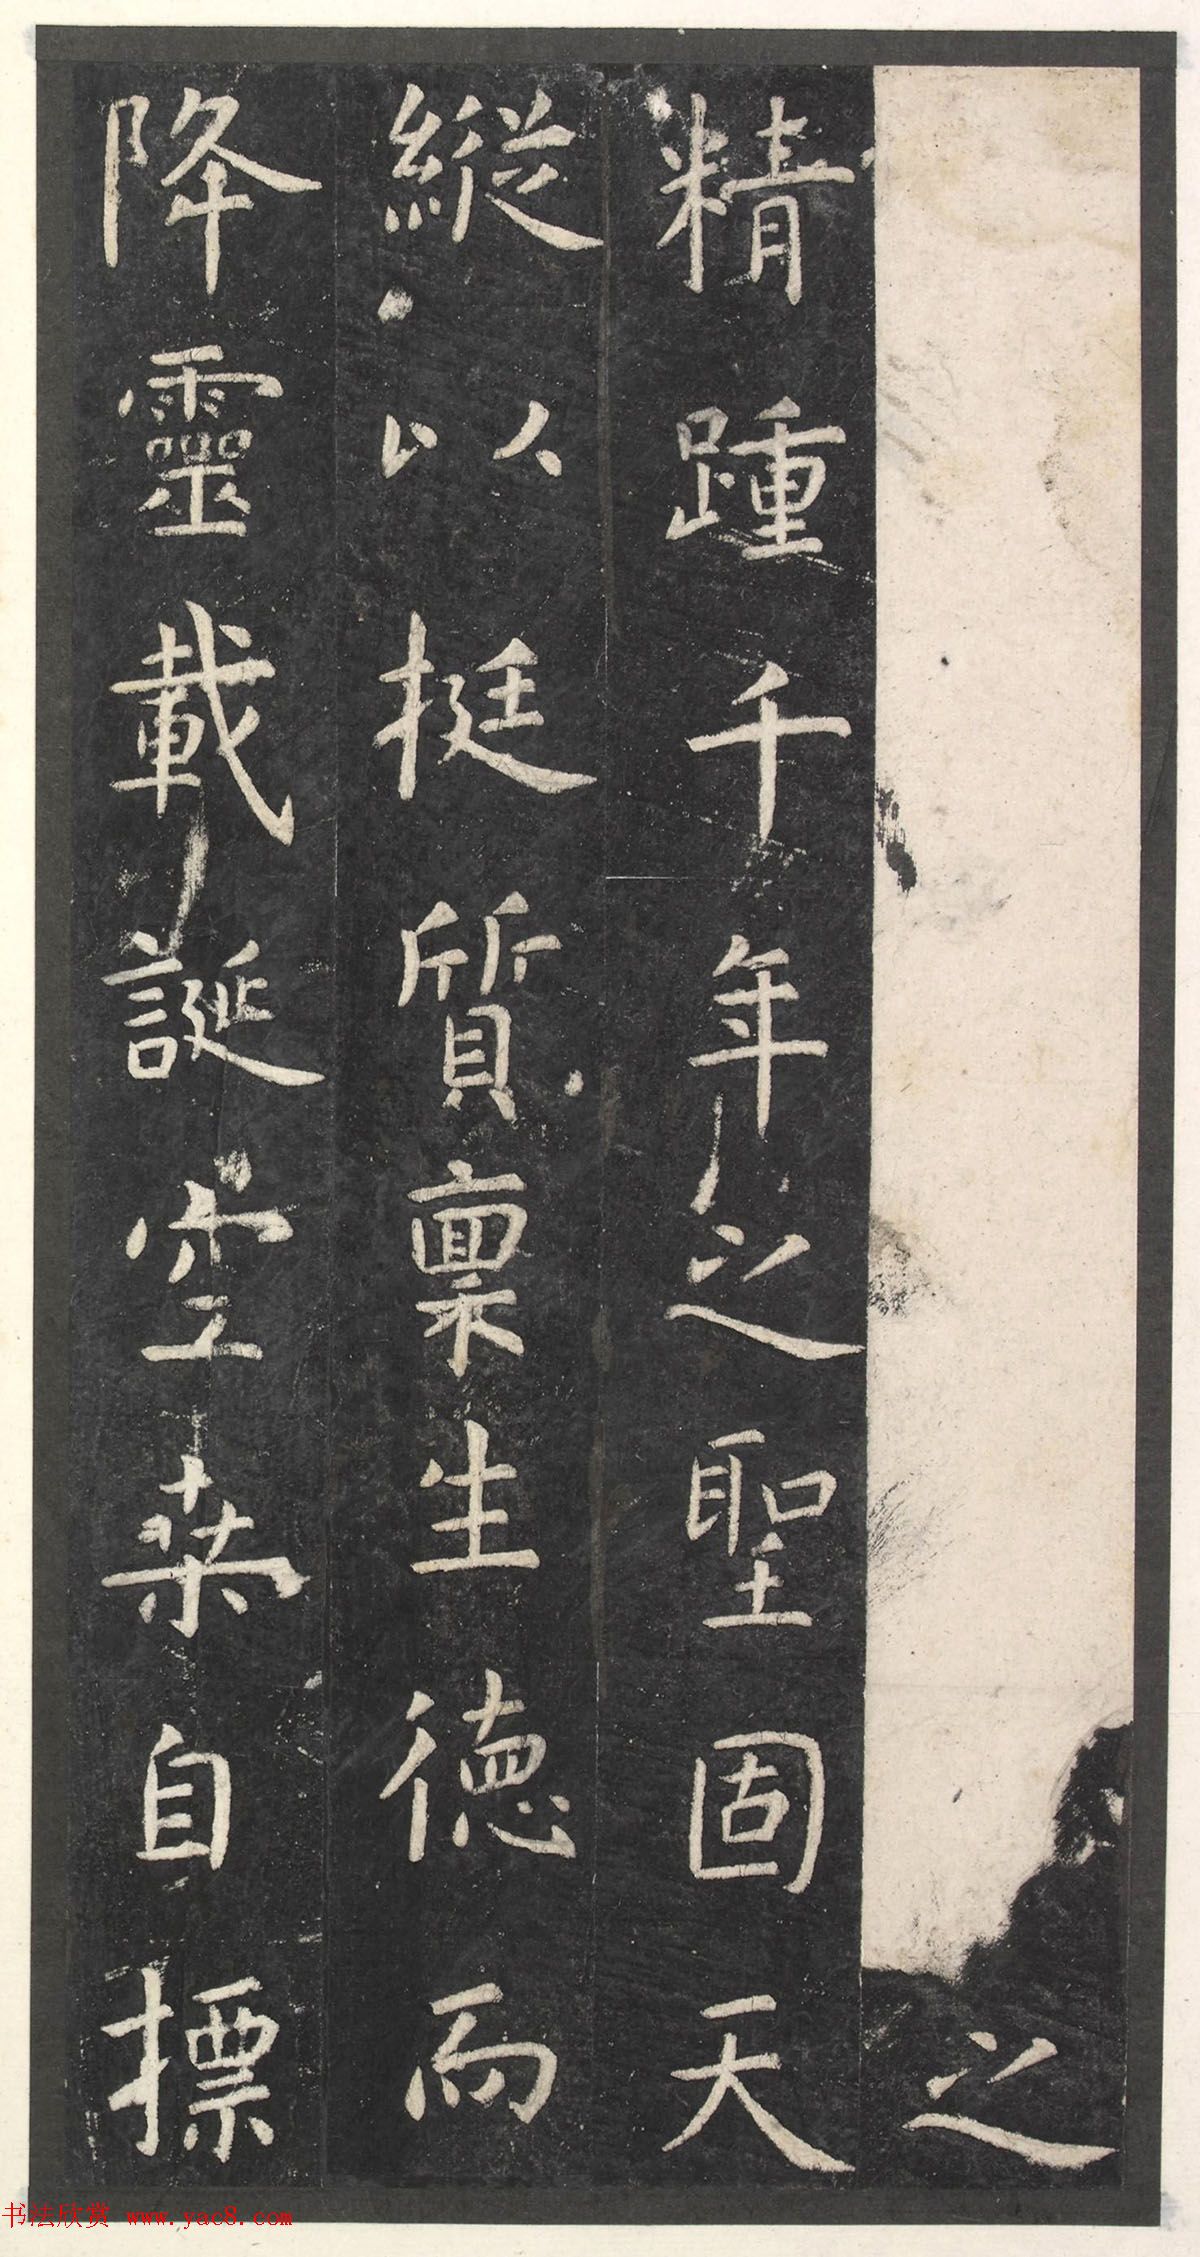 之
精踵千年之聖固天
縱以挺質稟生德而
降靈載誕空桒自標
书法欣赏 www.yac8.com